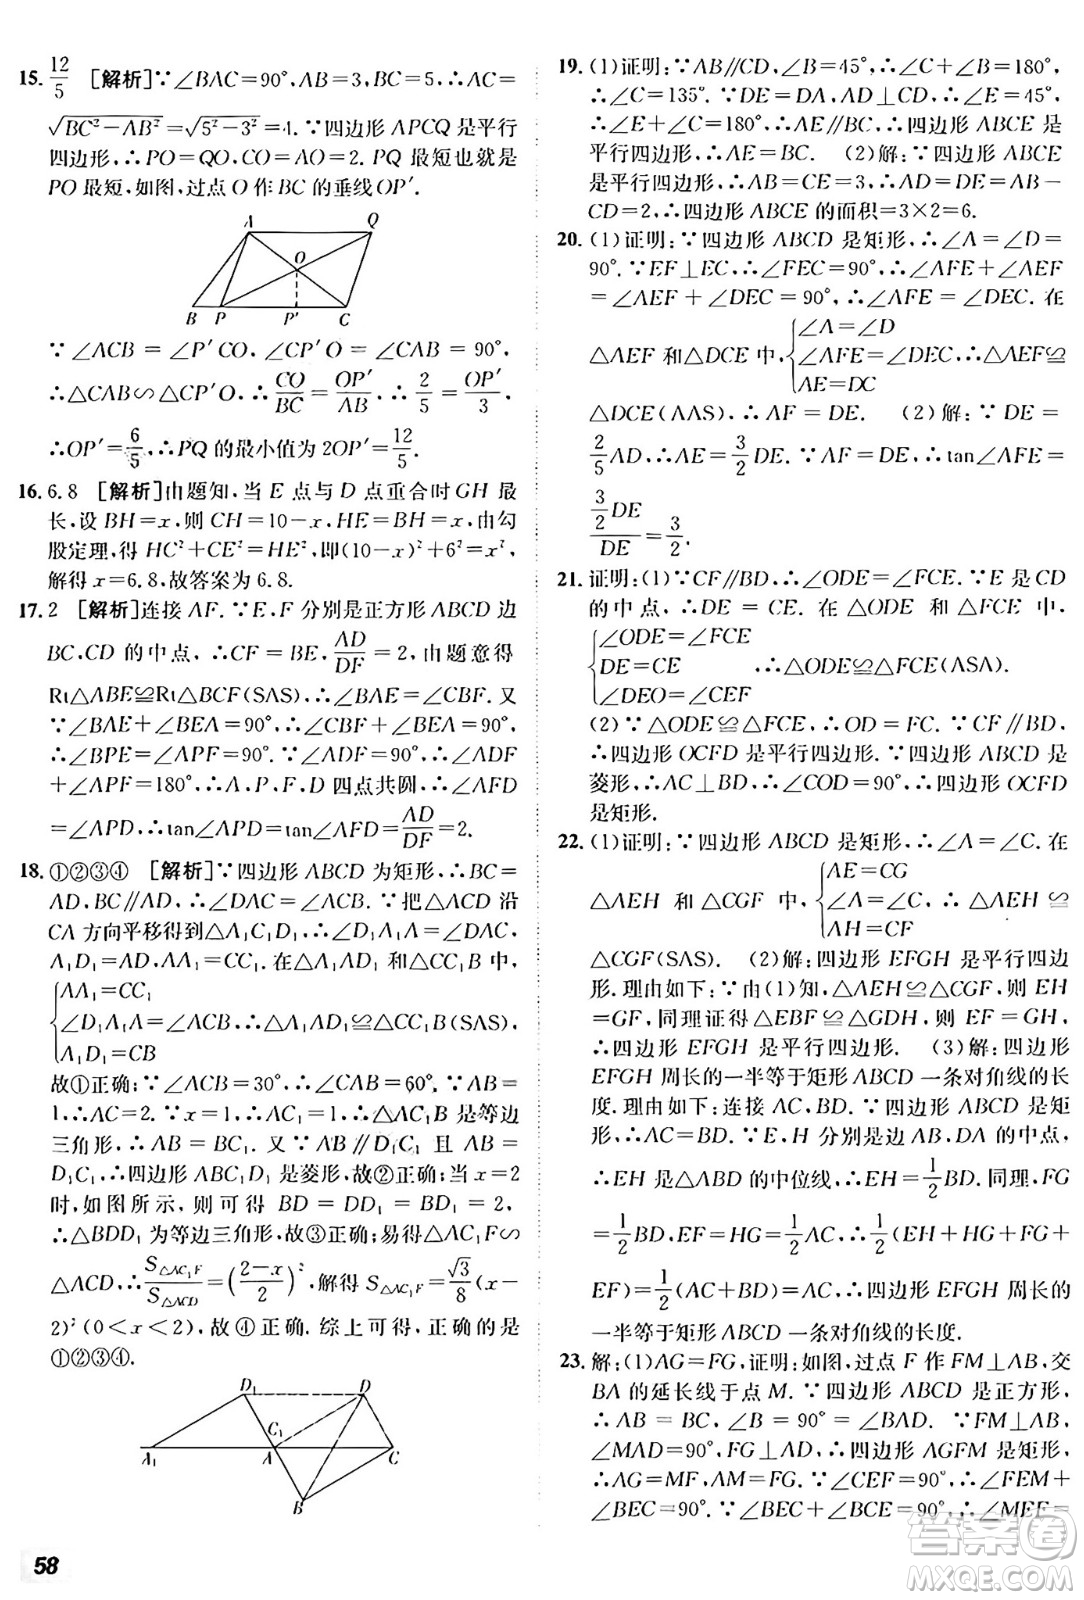 15. 12/5 [解析]∵∠BAC=90°,AB=3,BC=5,∴AC=
√(BC²−AB²)=√(5²−3²)=4.∵四边形 APCQ 是平行
四边形,∴PO=QO,CO=AO=2.PQ 最短也就是
PO 最短,如图,过点 O 作 BC 的垂线OP′.
A Q
O
B P P′ C
∵∠ACB=∠P′CO,∠CP′O=∠CAB=90°,
∴△CAB∽△CP′O.∴CO/BC=OP′/AB,∴2/5=OP′/3,
∴OP′=6/5,∴PQ 的最小值为 2OP′=12/5.
16. 6.8 [解析]由题知,当 E 点与 D 点重合时GH 最
长,设 BH=x,则 CH=10−x,HE=BH=x,由勾
股定理,得 HC²+CE²=HE²,即(10−x)²+6²=x²,
解得 x=6.8,故答案为 6.8.
17. 2 [解析]连接 AF.∵E,F 分别是正方形 ABCD 边
BC,CD 的中点,∴CF=BE,AD/DF=2,由题意得
Rt△ABE≌Rt△BCF(SAS),∴∠BAE=∠CBF.又
∵∠BAE+∠BEA=90°,∴∠CBF+∠BEA=90°,
∴∠BPE=∠APF=90°.∵∠ADF=90°,∴∠ADF
+∠APF=180°,∴A,P,F,D 四点共圆,∴∠AFD
=∠APD,∴tan∠APD=tan∠AFD=AD/DF=2.
18. ①②③④ [解析]∵四边形 ABCD 为矩形,∴BC=
AD,BC∥AD,∴∠DAC=∠ACB.∵把△ACD 沿
CA 方向平移得到△A₁C₁D₁,∴∠A₁=∠DAC,
A₁D₁=AD,AA₁=CC₁.在△A₁AD₁ 与△CC₁B 中,
{AA₁=CC₁
∠D₁A₁A=∠ACB,∴△A₁AD₁≌△CC₁B(SAS),
A₁D₁=CB
故①正确;∵∠ACB=30°,∴∠CAB=60°.∵AB=
1,∴AC=2.∵x=1,∴AC₁=1,∴△AC₁B 是等边
三角形,∴AB=BC₁.又∵AB∥D₁C₁ 且 AB=
D₁C₁,∴四边形 ABC₁D₁ 是菱形,故②正确;当 x=2
时,如图所示,则可得 BD=DD₁=BD₁=2,
∴△BDD₁为等边三角形,故③正确;∵△AC₁F∽
△ACD,∴S△AC₁F/S△ACD=((2−x)/2)²,解得 S△AC₁F=√3/8(x−
2)²(0<x<2),故④正确.综上可得,正确的是
①②③④.
D₁ D
C₁
A₁ A C
B
58
19. (1)证明:∵AB∥CD,∠B=45°,∴∠C+∠B=180°,
∴∠C=135°.∵DE=DA,AD⊥CD,∴∠E=45°,
∴∠E+∠C=180°,∴AE∥BC.∴四边形 ABCE 是
平行四边形,∴AE=BC. (2)解:∵四边形 ABCE
是平行四边形,∴AB=CE=3,∴AD=DE=AB−
CD=2,∴四边形 ABCE 的面积=3×2=6.
20. (1)证明:∵四边形 ABCD 是矩形,∴∠A=∠D=
90°.∵EF⊥EC,∴∠FEC=90°,∴∠AFE+∠AEF
=∠AEF+∠DEC=90°,∴∠AFE=∠DEC.在
△AEF 和△DCE 中,{∠A=∠D
∠AFE=∠DEC,∴△AEF≌
AE=DC
△DCE(AAS),∴AF=DE. (2)解:∵DE=
2/5AD,∴AE=3/2DE,∴AF=DE,∴tan∠AFE=
(3/2DE)/DE=3/2.
21. 证明:(1)∵CF∥BD,∴∠ODE=∠FCE.∵E 是 CD
的中点,∴DE=CE.在△ODE 和△FCE 中,
{∠ODE=∠FCE
DE=CE ∴△ODE≌△FCE(ASA).
∠DEO=∠CEF
(2)∵△ODE≌△FCE,∴OD=FC.∵CF∥BD,
∴四边形OCFD是平行四边形.∵四边形ABCD是
菱形,∴AC⊥BD,∴∠COD=90°,∴四边形OCFD
是矩形.
22. (1)证明:∵四边形 ABCD 是矩形,∴∠A=∠C.在
△AEH 和△CGF 中,{AE=CG
∠A=∠C,∴△AEH≌
AH=CF
△CGF(SAS). (2)解:四边形 EFGH 是平行四边
形.理由如下:∵由(1)知,△AEH≌△CGF,则 EH
=GF,同理证得△EBF≌△GDH,则 EF=GH,
∴四边形 EFGH 是平行四边形. (3)解:四边形
EFGH 周长的一半等于矩形 ABCD 一条对角线的长
度.理由如下:连接 AC,BD,∵四边形 ABCD 是矩
形,∴AC=BD.∵E,H 分别是边 AB,DA 的中点,
∴EH 是△ABD 的中位线,∴EH=1/2BD.同理,FG
=1/2BD,EF=HG=1/2AC,∴1/2(EH+HG+FG+
EF)=1/2(AC+BD)=AC,∴四边形 EFGH 周长的
一半等于矩形 ABCD 一条对角线的长度.
23. 解:(1)AG=FG,证明:如图,过点 F 作 FM⊥AB,交
BA 的延长线于点 M.∵四边形 ABCD 是正方形,
∴AB=BC,∠B=90°=∠BAD.∵FM⊥AB,
∠MAD=90°,FG⊥AD,∴四边形 AGFM 是矩形,
∴AG=MF,AM=FG.∵∠CEF=90°,∴∠FEM+
∠BEC=90°.∵∠BEC+∠BCE=90°,∴∠MEF=
答案圈
MXQE.COM